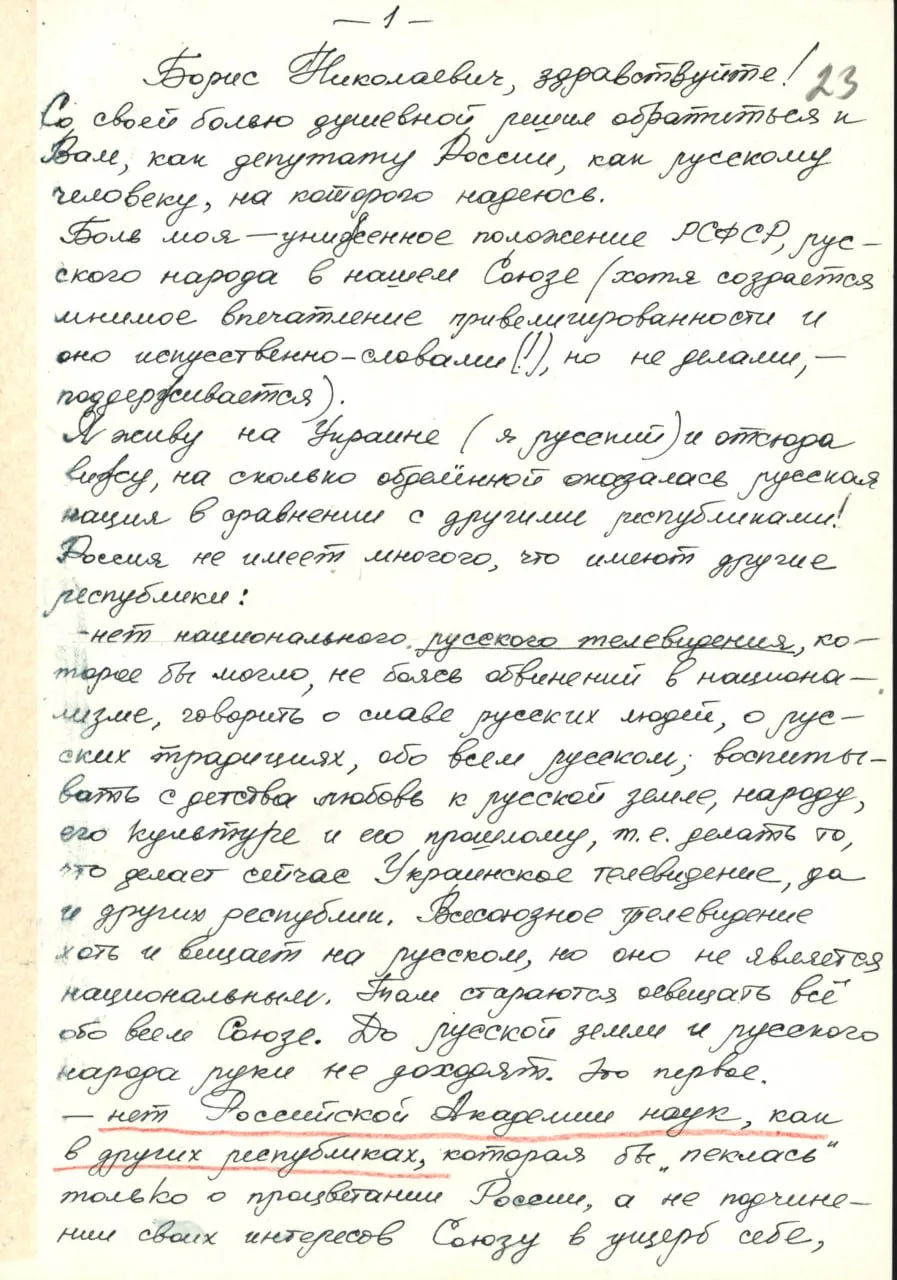 — 1 —
Борис Николаевич, здравствуйте! 23
Со своей болью душевной решил обратиться к
Вам, как депутату России, как русскому
человеку, на которого надеюсь.
Боль моя — униженное положение РСФСР, рус-
ского народа в нашем Союзе (хотя создается
мнимое впечатление привелигированности и
оно искуственно-словами(!), но не делами,—
поддерживается).
Я живу на Украине (я русский) и отсюда
вижу, на сколько обделённой оказалась русская
нация в сравнении с другими республиками!
Россия не имеет многого, что имеют другие
республики:
-нет национального русского телевидения, ко-
торое бы могло, не боясь обвинений в национа-
лизме, говорить о славе русских людей, о рус-
ских традициях, обо всем русском; воспиты-
вать с детства любовь к русской земле, народу,
его культуре и его прошлому, т.е. делать то,
что делает сейчас Украинское телевидение, да
и других республик. Всесоюзное телевидение
хоть и вещает на русском, но оно не является
национальным. Там стараются освещать всё
обо всем Союзе. До русской земли и русского
народа руки не доходят. Это первое.
— нет Российской Академии наук, как
в других республиках, которая бы „пеклась"
только о процветании России, а не подчине-
нии своих интересов Союзу в ущерб себе,